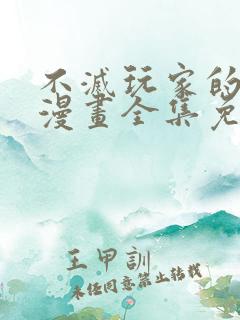 不滅玩家的
漫畫全集免
王甲訓
未经同意禁止转载